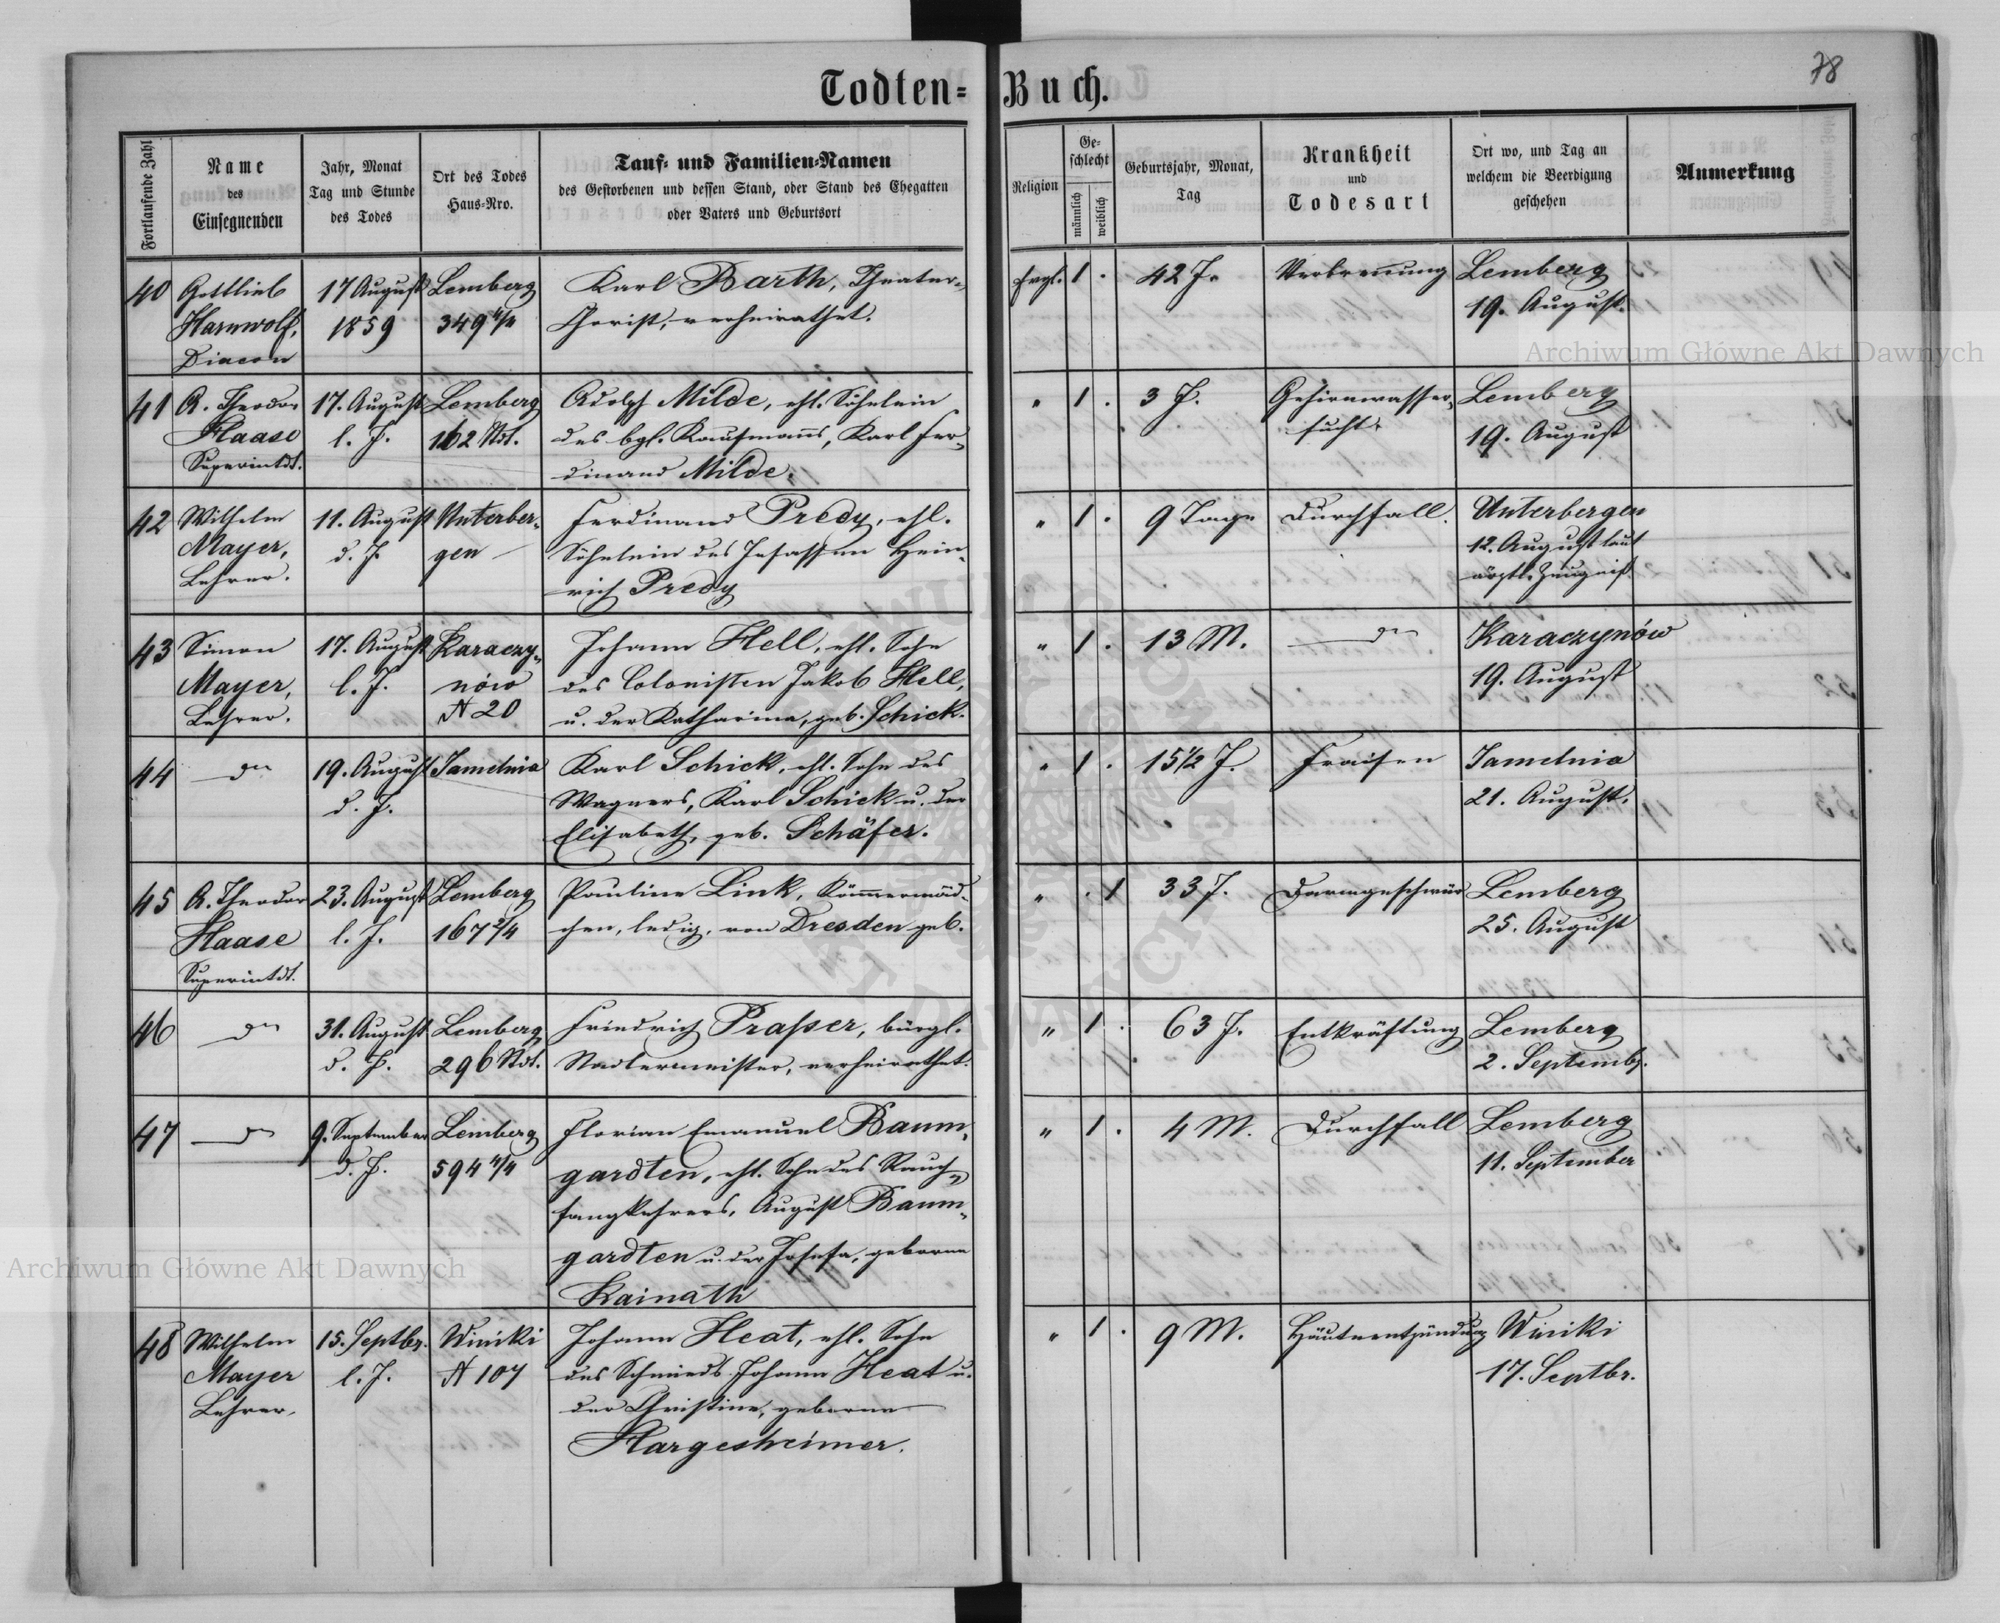 Todten-Buch.
78
Fortlaufende Zahl
Name
des
Einsegnenden
Jahr, Monat
Tag und Stunde
des Todes
Ort des Todes
Haus-Nro.
Tauf- und Familien-Namen
des Gestorbenen und dessen Stand, oder Stand des Ehegatten
oder Vaters und Geburtsort
Religion
Ge-
schlecht
männlich
weiblich
Geburtsjahr, Monat,
Tag
Krankheit
und
Todesart
Ort wo, und Tag an
welchem die Beerdigung
geschehen
Anmerkung
40
Gottlieb
Harnwolf,
Diacon
17 August
1859
Lemberg
349 4/4
Karl Barth, Theater-
Chorist, verheirathet.
Evgl.
1 .
42 J.
Verbrennung
Lemberg
19. August.
41
A. Theodor
Haase
Superintdt.
17. August
l. J.
Lemberg
162 Stdt.
Adolph Milde, ehl. Söhnlein
des bgl. Kaufmanns, Karl Fer-
dinand Milde.
"
1 .
3 J.
Gehirnwasser-
sucht
Lemberg
19. August
42
Wilhelm
Mayer,
Lehrer.
11. August
d. J.
Unterber-
gen
Ferdinand Predy, ehl.
Söhnlein des Insassen Hein-
rich Predy
"
1 .
9 Tage
Durchfall.
Unterbergen
12. August laut
ärztl. Zeugniß.
43
Simon
Mayer,
Lehrer.
17. August
l. J.
Karaczy-
nów
N 20
Johann Hell, ehl. Sohn
des Colonisten Jakob Hell,
u. der Katharina, geb. Schick.
"
1 .
13 M.
dto
Karaczynów
19. August
44
dto
19. August
d. J.
Jamelnia
Karl Schick, ehl. Sohn des
Wagners, Karl Schick u. der
Elisabeth, geb. Schäfer.
"
1 .
15 1/2 J.
Fraisen
Jamelnia
21. August.
45
A. Theodor
Haase
Superintdt.
23. August
l. J.
Lemberg
167 2/4
Pauline Link, Kammermäd-
chen, ledig, von Dresden geb.
"
. 1
33 J.
Darmgeschwür
Lemberg
25. August
46
dto
31. August
d. J.
Lemberg
296 Stdt.
Friedrich Praßer, bürgl.
Nadlermeister, verheirathet.
"
1 .
63 J.
Entkräftung
Lemberg
2. Septembr.
47
dto
9. September
d. J.
Lemberg
594 4/4
Florian Emanuel Baum-
gardten, ehl. Sohn des Rauch-
fangkehrers, August Baum-
gardten u. der Josefa, geborne
Kainath
"
1 .
4 M.
Durchfall
Lemberg
11. September
48
Wilhelm
Mayer
Lehrer.
15. Septbr.
l. J.
Winiki
N 107
Johann Heat, ehl. Sohn
des Schmieds Johann Heat u.
der Christine, geborne
Hargesheimer.
"
1 .
9 M.
Häuteentzündung
Winiki
17. Septbr.
Archiwum Główne Akt Dawnych
Archiwum Główne Akt Dawnych